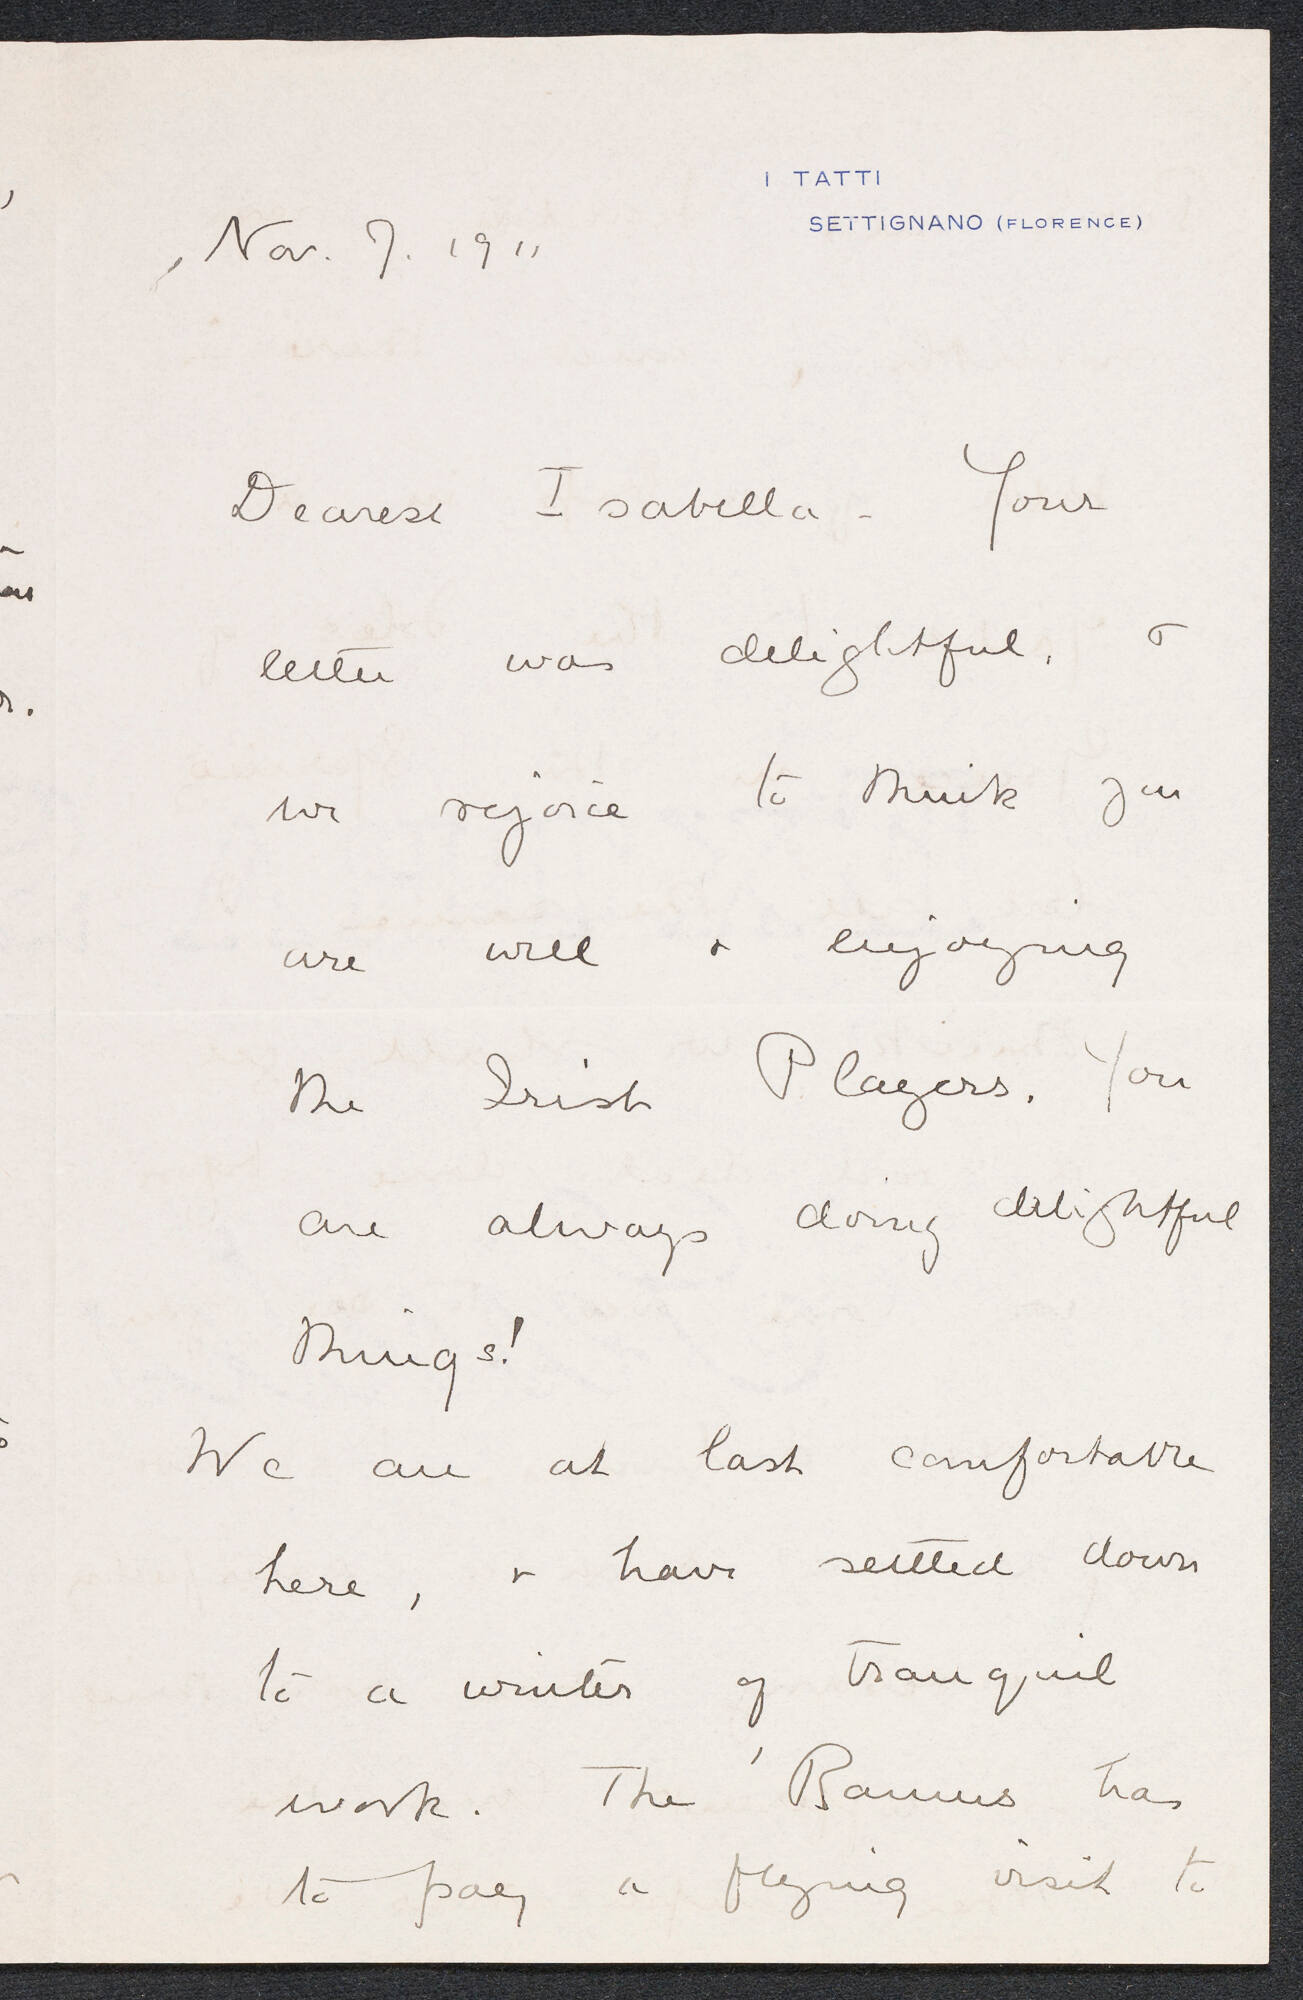 I TATTI
SETTIGNANO (FLORENCE)
Nov. 7. 1911
Dearest Isabella - Your
letter was delightful, &
we rejoice to think you
are well & enjoying
the Irish Players. You
are always doing delightful
things!
We are at last comfortable
here, & have settled down
to a winter of tranquil
work. The has
to pay a flying visit to